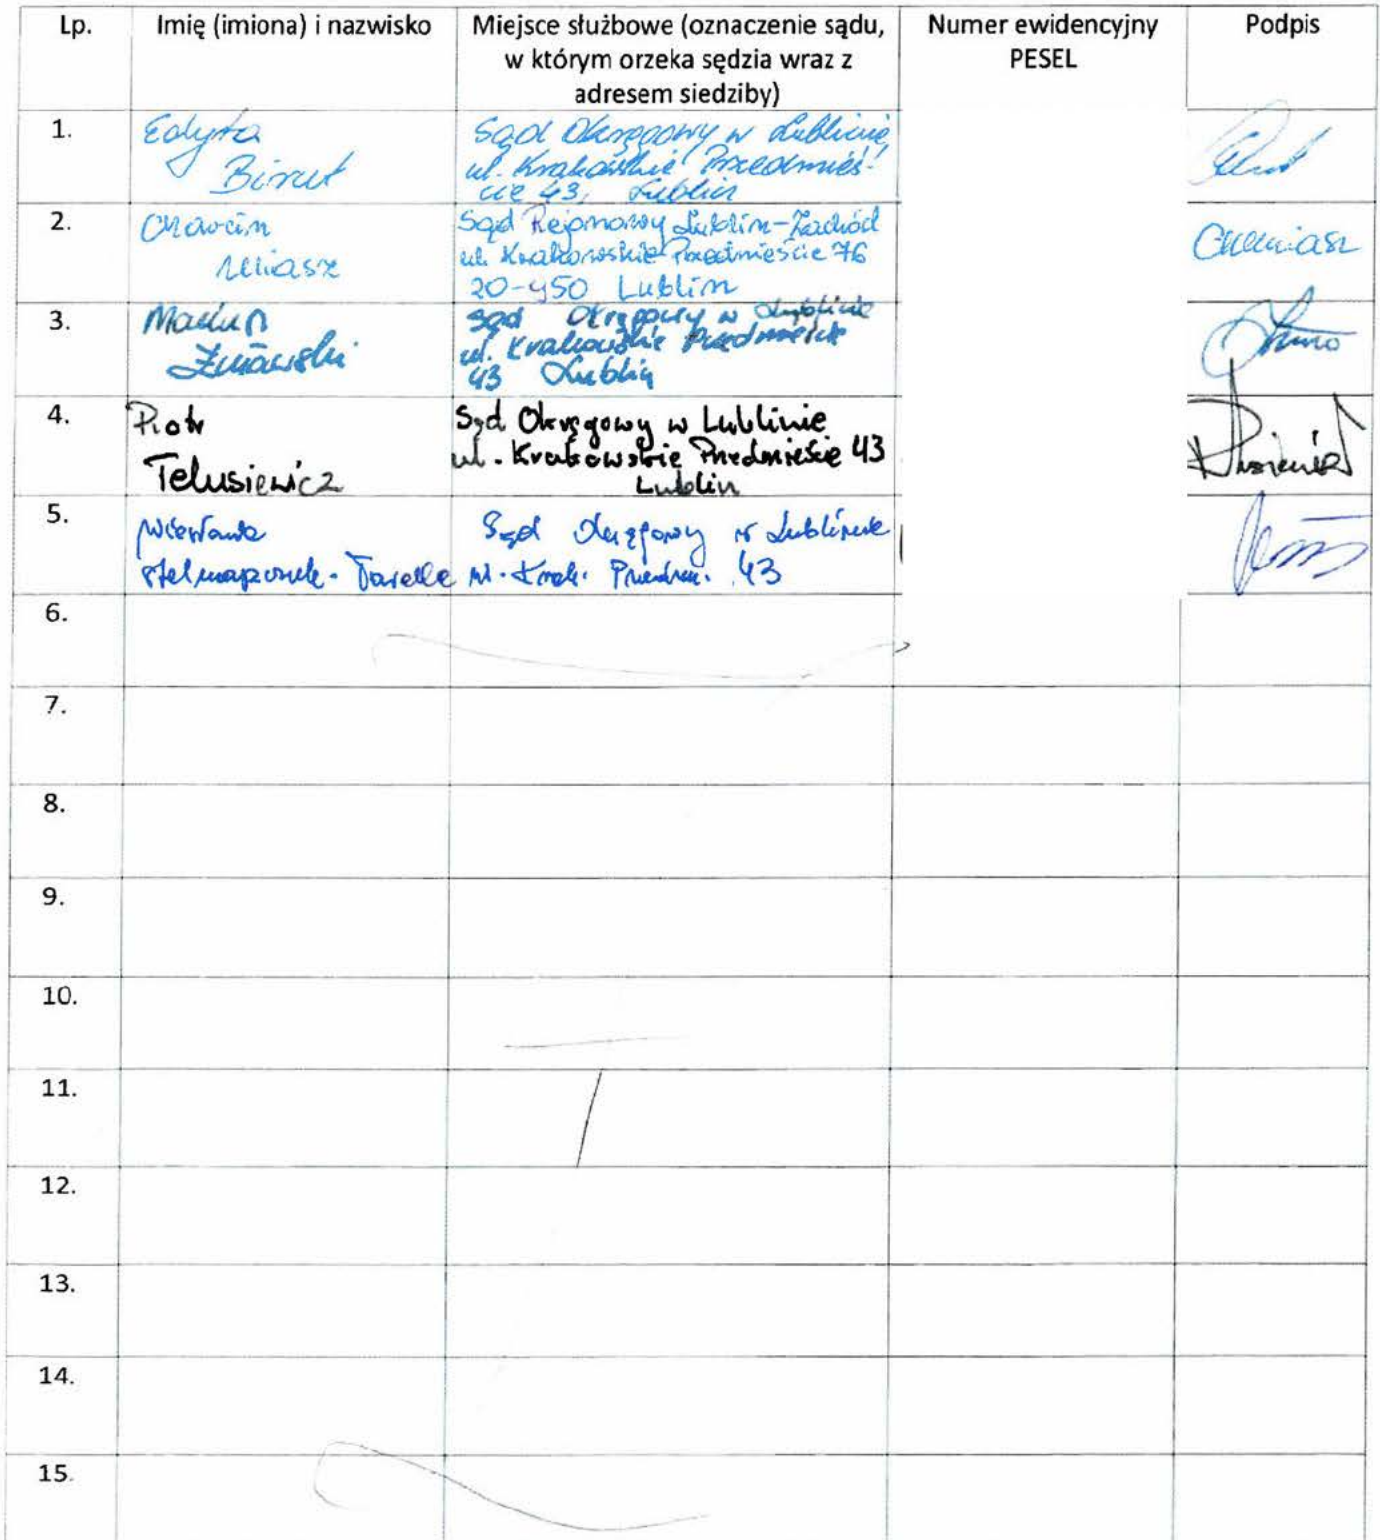 Lp.
Imię (imiona) i nazwisko
Miejsce służbowe (oznaczenie sądu,
w którym orzeka sędzia wraz z
adresem siedziby)
Numer ewidencyjny
PESEL
Podpis
1.
Edyta
Birut
Sąd Okręgowy w Lublinie
ul. Krakowskie Przedmieś-
cie 43, Lublin
2.
Marcin
Sąd Rejonowy Lublin-Zachód
ul. Krakowskie Przedmieście 76
20-950 Lublin
3.
Żmawski
Sąd Okręgowy w Lublinie
ul. Krakowskie Przedmieście
43 Lublin
4.
Piotr
Telusiewicz
Sąd Okręgowy w Lublinie
ul. Krakowskie Przedmieście 43
Lublin
5.
Wiesława
Stelmaszczuk-
Sąd Okręgowy w Lublinie
ul. Krak. Przedm. 43
6.
7.
8.
9.
10.
11.
12.
13.
14.
15.